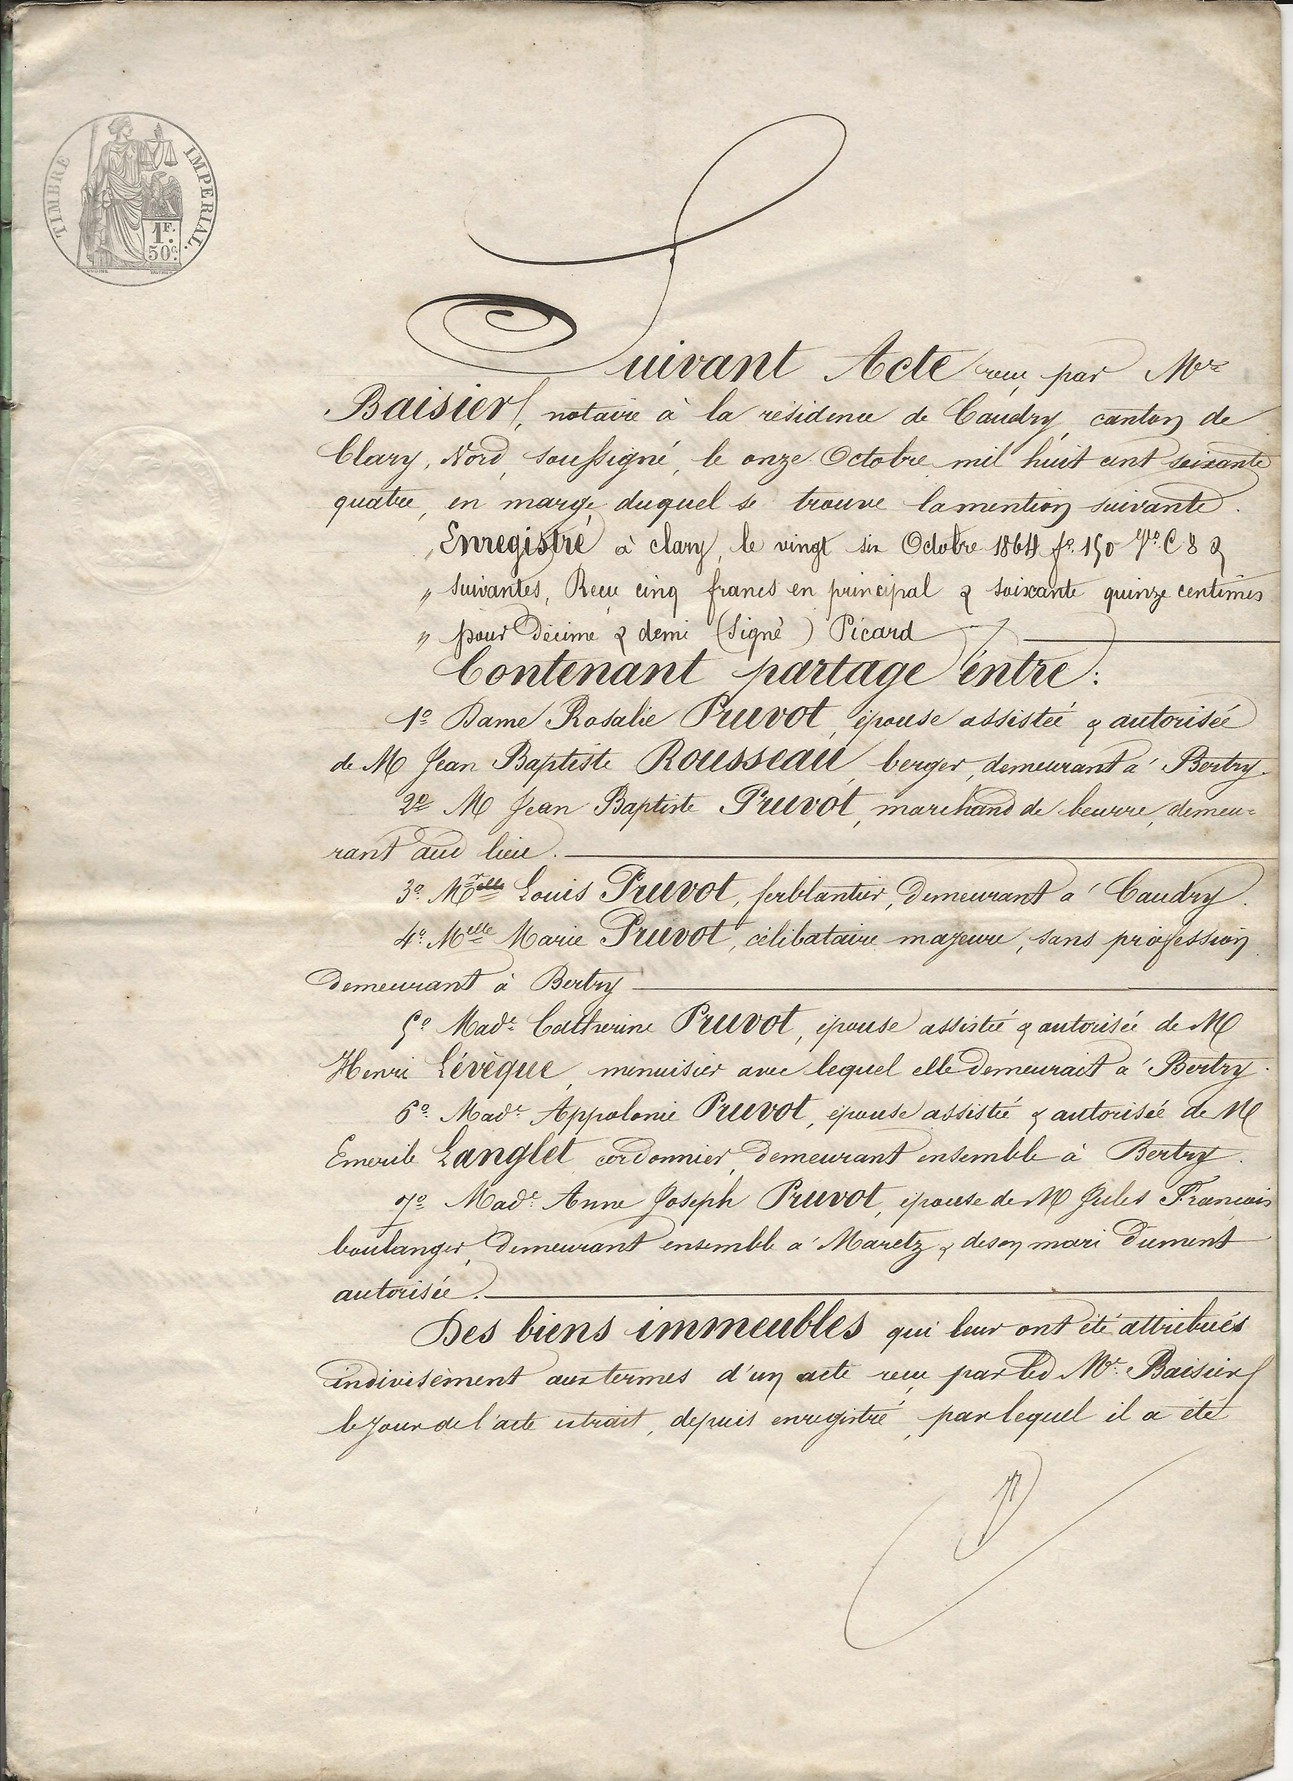 TIMBRE IMPERIAL.
1F.
50c.
Suivant Acte reçu par Me
Baisier, notaire à la résidence de Caudry, canton de
Clary, Nord, soussigné, le onze Octobre mil huit cent soixante
quatre, en marge duquel se trouve la mention suivante.
" Enregistré à clary, le vingt six Octobre 1864 fo. 150 Vo. C 8 &
" suivantes, Reçu cinq francs en principal & soixante quinze centimes
" pour Décime & demi (Signé) Picard
Contenant partage entre:
1o Dame Rosalie Pruvot, épouse assistée & autorisée
de M Jean Baptiste Rousseau, berger, demeurant à Bertry.
2o M Jean Baptiste Pruvot, marchand de beurre, demeu=
rant aud lieu.
3o Mr Louis Pruvot, ferblantier, demeurant à Caudry.
4o Melle Marie Pruvot, célibataire majeure, sans profession
demeurant à Bertry
5o Made Catherine Pruvot, épouse assistée & autorisée de M
Henri Lévêque, menuisier avec lequel elle demeurait à Bertry.
6o Made Appolonie Pruvot, épouse assistée & autorisée de M
Emerile Langlet cordonnier, demeurant ensemble à Bertry.
7o Made Anne Joseph Pruvot, épouse de M Jules Francois
boulanger, demeurant ensemble à Maretz & de son mari dument
autorisée.
Des biens immeubles qui leur ont été attribués
indivisément aux termes d'un acte reçu par led Me Baisier
le jour de l'acte extrait, depuis enregistré, par lequel il a été